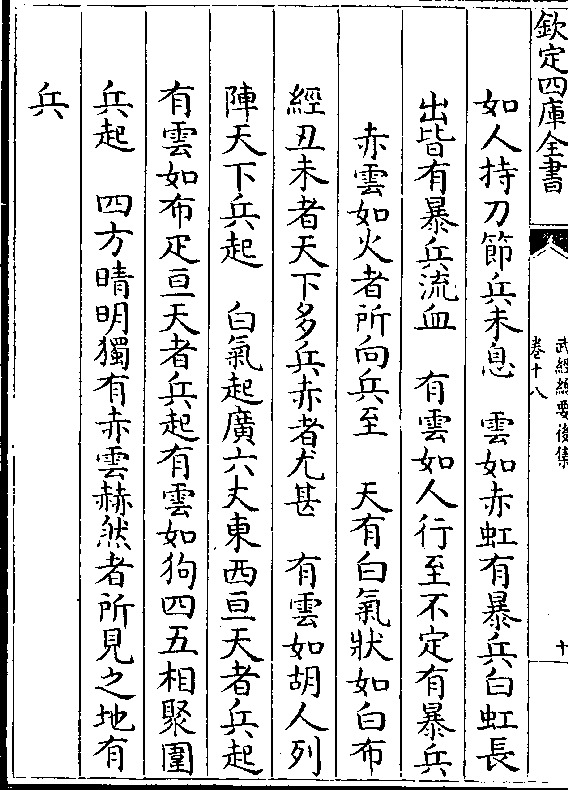 欽定四庫全書
武經總要後集
卷十八
十
如人持刀節兵未息　雲如赤虹有暴兵白虹長
出皆有暴兵流血　有雲如人行至不定有暴兵
赤雲如火者所向兵至　天有白氣狀如白布
經丑未者天下多兵赤者尤甚　有雲如胡人列
陣天下兵起　白氣起廣六丈東西亘天者兵起
有雲如布疋亘天者兵起有雲如狗四五相聚圍
兵起　四方晴明獨有赤雲赫然者所見之地有
兵